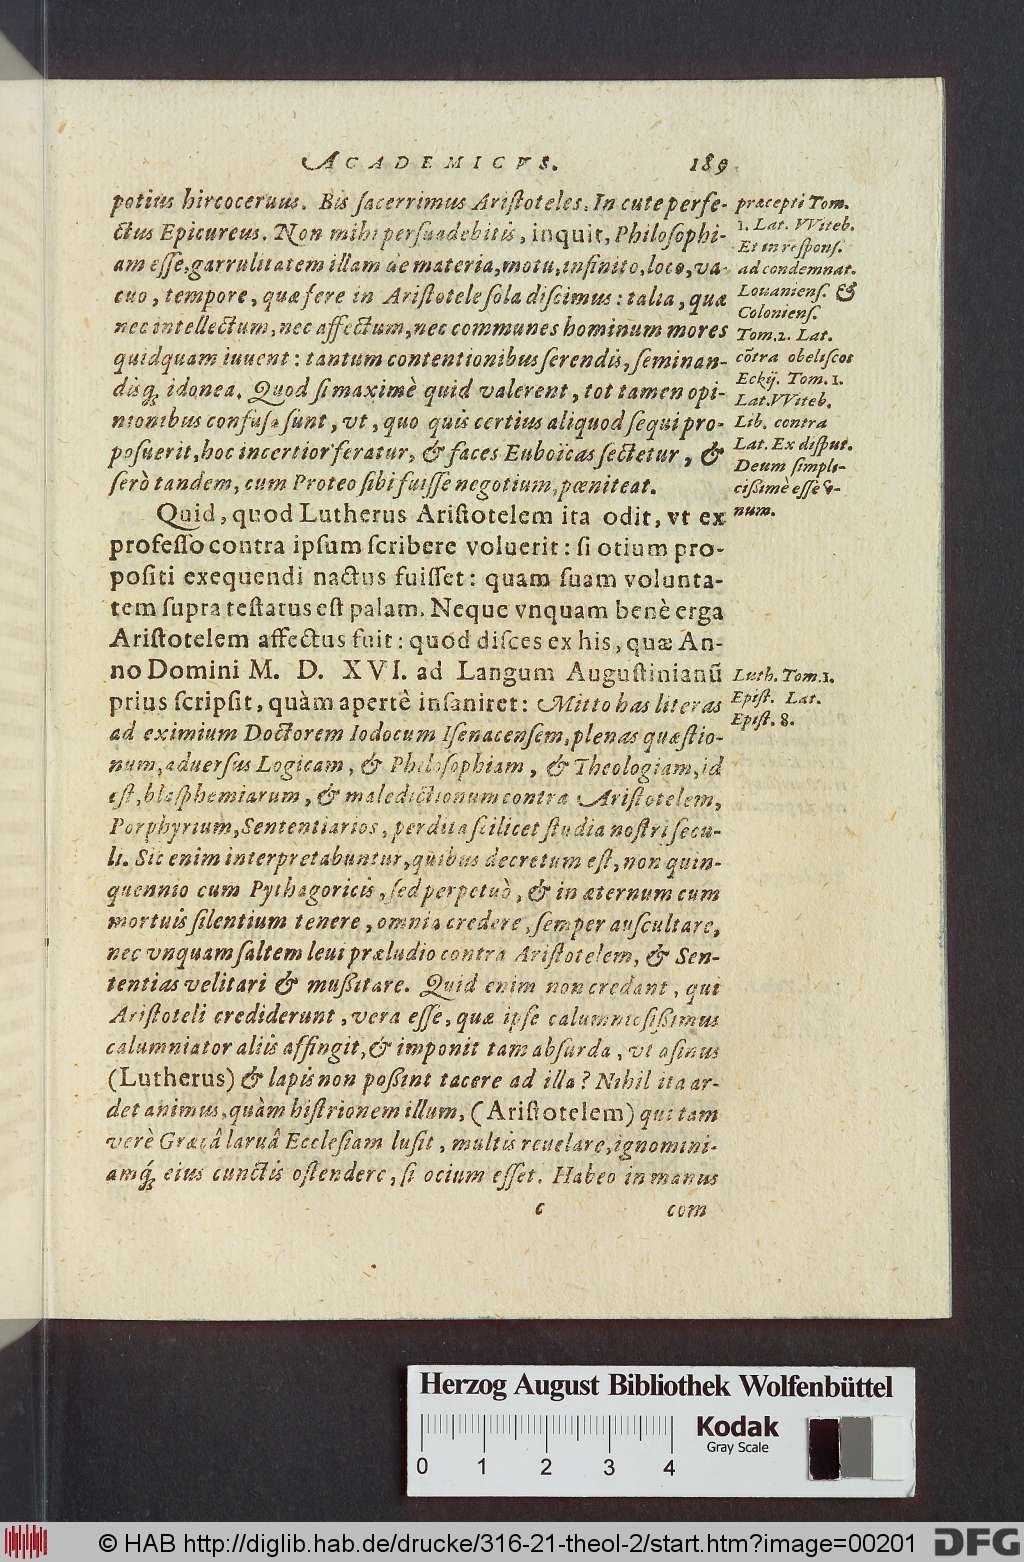 ACADEMICVS. 189
potius hircoceruus. Bis sacerrimus Aristoteles. In cute perfe-
ctus Epicureus. Non mihi persuadebitis, inquit, Philosophi-
am esse, garrulitatem illam de materia, motu, infinito, loco, va-
cuo, tempore, quæ fere in Aristotele sola discimus: talia, quæ
nec intellectum, nec affectum, nec communes hominum mores
quidquam iuuent: tantum contentionibus serendis, seminan-
disq; idonea. Quod si maximè quid valerent, tot tamen opi-
nionibus confusa sunt, vt, quo quis certius aliquod sequi pro-
posuerit, hoc incertior feratur, & faces Euboicas sectetur, &
serò tandem, cum Proteo sibi fuisse negotium, pœniteat.
præcepti Tom.
1. Lat. VViteb.
Et in respons.
ad condemnat.
Louaniens. &
Coloniens.
Tom. 2. Lat.
cõtra obeliscos
Eckij. Tom. 1.
Lat. VViteb.
Lib. contra
Lat. Ex disput.
Deum simpli-
cißimè esse v-
num.
Quid, quod Lutherus Aristotelem ita odit, vt ex
professo contra ipsum scribere voluerit: si otium pro-
positi exequendi nactus fuisset: quam suam volunta-
tem supra testatus est palam. Neque vnquam benè erga
Aristotelem affectus fuit: quod disces ex his, quæ An-
no Domini M. D. XVI. ad Langum Augustinianũ
prius scripsit, quàm apertê insaniret: Mitto has literas
ad eximium Doctorem Iodocum Isenacensem, plenas quæstio-
num, aduersus Logicam, & Philosophiam, & Theologiam, id
est, blasphemiarum, & maledictionum contra Aristotelem,
Porphyrium, Sententiarios, perdita scilicet studia nostri secu-
li. Sic enim interpretabuntur, quibus decretum est, non quin-
quennio cum Pythagoricis, sed perpetuò, & in æternum cum
mortuis silentium tenere, omnia credere, semper auscultare,
nec vnquam saltem leui præludio contra Aristotelem, & Sen-
tentias velitari & mußitare. Quid enim non credant, qui
Aristoteli crediderunt, vera esse, quæ ipse calumniosißimus
calumniator aliis affingit, & imponit tam absurda, vt asinus
(Lutherus) & lapis non poßint tacere ad illa? Nihil ita ar-
det animus, quàm histrionem illum, (Aristotelem) qui tam
verè Græcâ laruâ Ecclesiam lusit, multis reuelare, ignomini-
amq́; eius cunctis ostendere, si ocium esset. Habeo in manus
Luth. Tom. 1.
Epist. Lat.
Epist. 8.
c com
Herzog August Bibliothek Wolfenbüttel
Kodak
Gray Scale
0 1 2 3 4
© HAB http://diglib.hab.de/drucke/316-21-theol-2/start.htm?image=00201 DFG